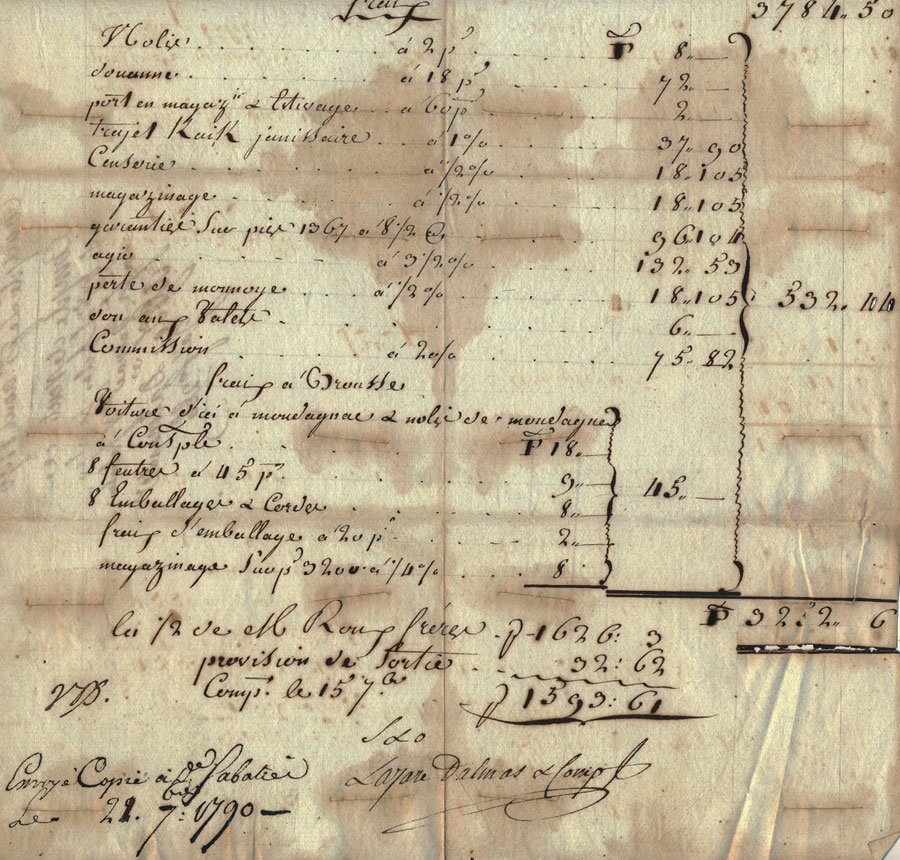 fraix 3784.. 50
Nolis . . . . . . . . . à 2 p.r . . . . P 8.. —
douanne . . . . . . . . à 18 p.r . . . . 72.. —
port en magaz.in & Estivage . à 60 p.r . . . . 2.. —
trajet Kaik janissaire . . à 1 % . . . . 37.. 90
Censerie . . . . . . . . à 1/2 % . . . . 18.. 105
magazinage . . . . . . . à 1/2 % . . . . 18.. 105
garanties Sur pies 1367 à 8 1/2 . . . . 96.. 104
agio . . . . . . . . à 3 1/2 % . . . . 132.. 53
perte de monnoye . . . . à 1/2 % . . . . 18.. 105 532.. 44
don aux Valets . . . . 6.. —
Commission . . . . à 2 % . . . . 75.. 82
fraix à Brousse
Voiture d'ici à mondagnac & nolis de mondagnac
à Constple . . . . P 18.. —
8 feutres à 45 p.r . . . . 9.. — 45.. —
8 Emballages & Cordes . . . . 8.. —
fraix d'emballage à 20 p.r . . . . 2.. —
magazinage Sur p.s 3200 à 1/4 % . . . . 8
P 3252.. 6
la 1/2 de M Roux frères . P 1626: 3
provision de Sortie . . . 32: 62
Comp.t le 15 7.bre P 1593: 61
S & o
Envoyé Copie à de Sabatier Lazare Dalmas & Comp
Le 21. 7: bre 1790 —